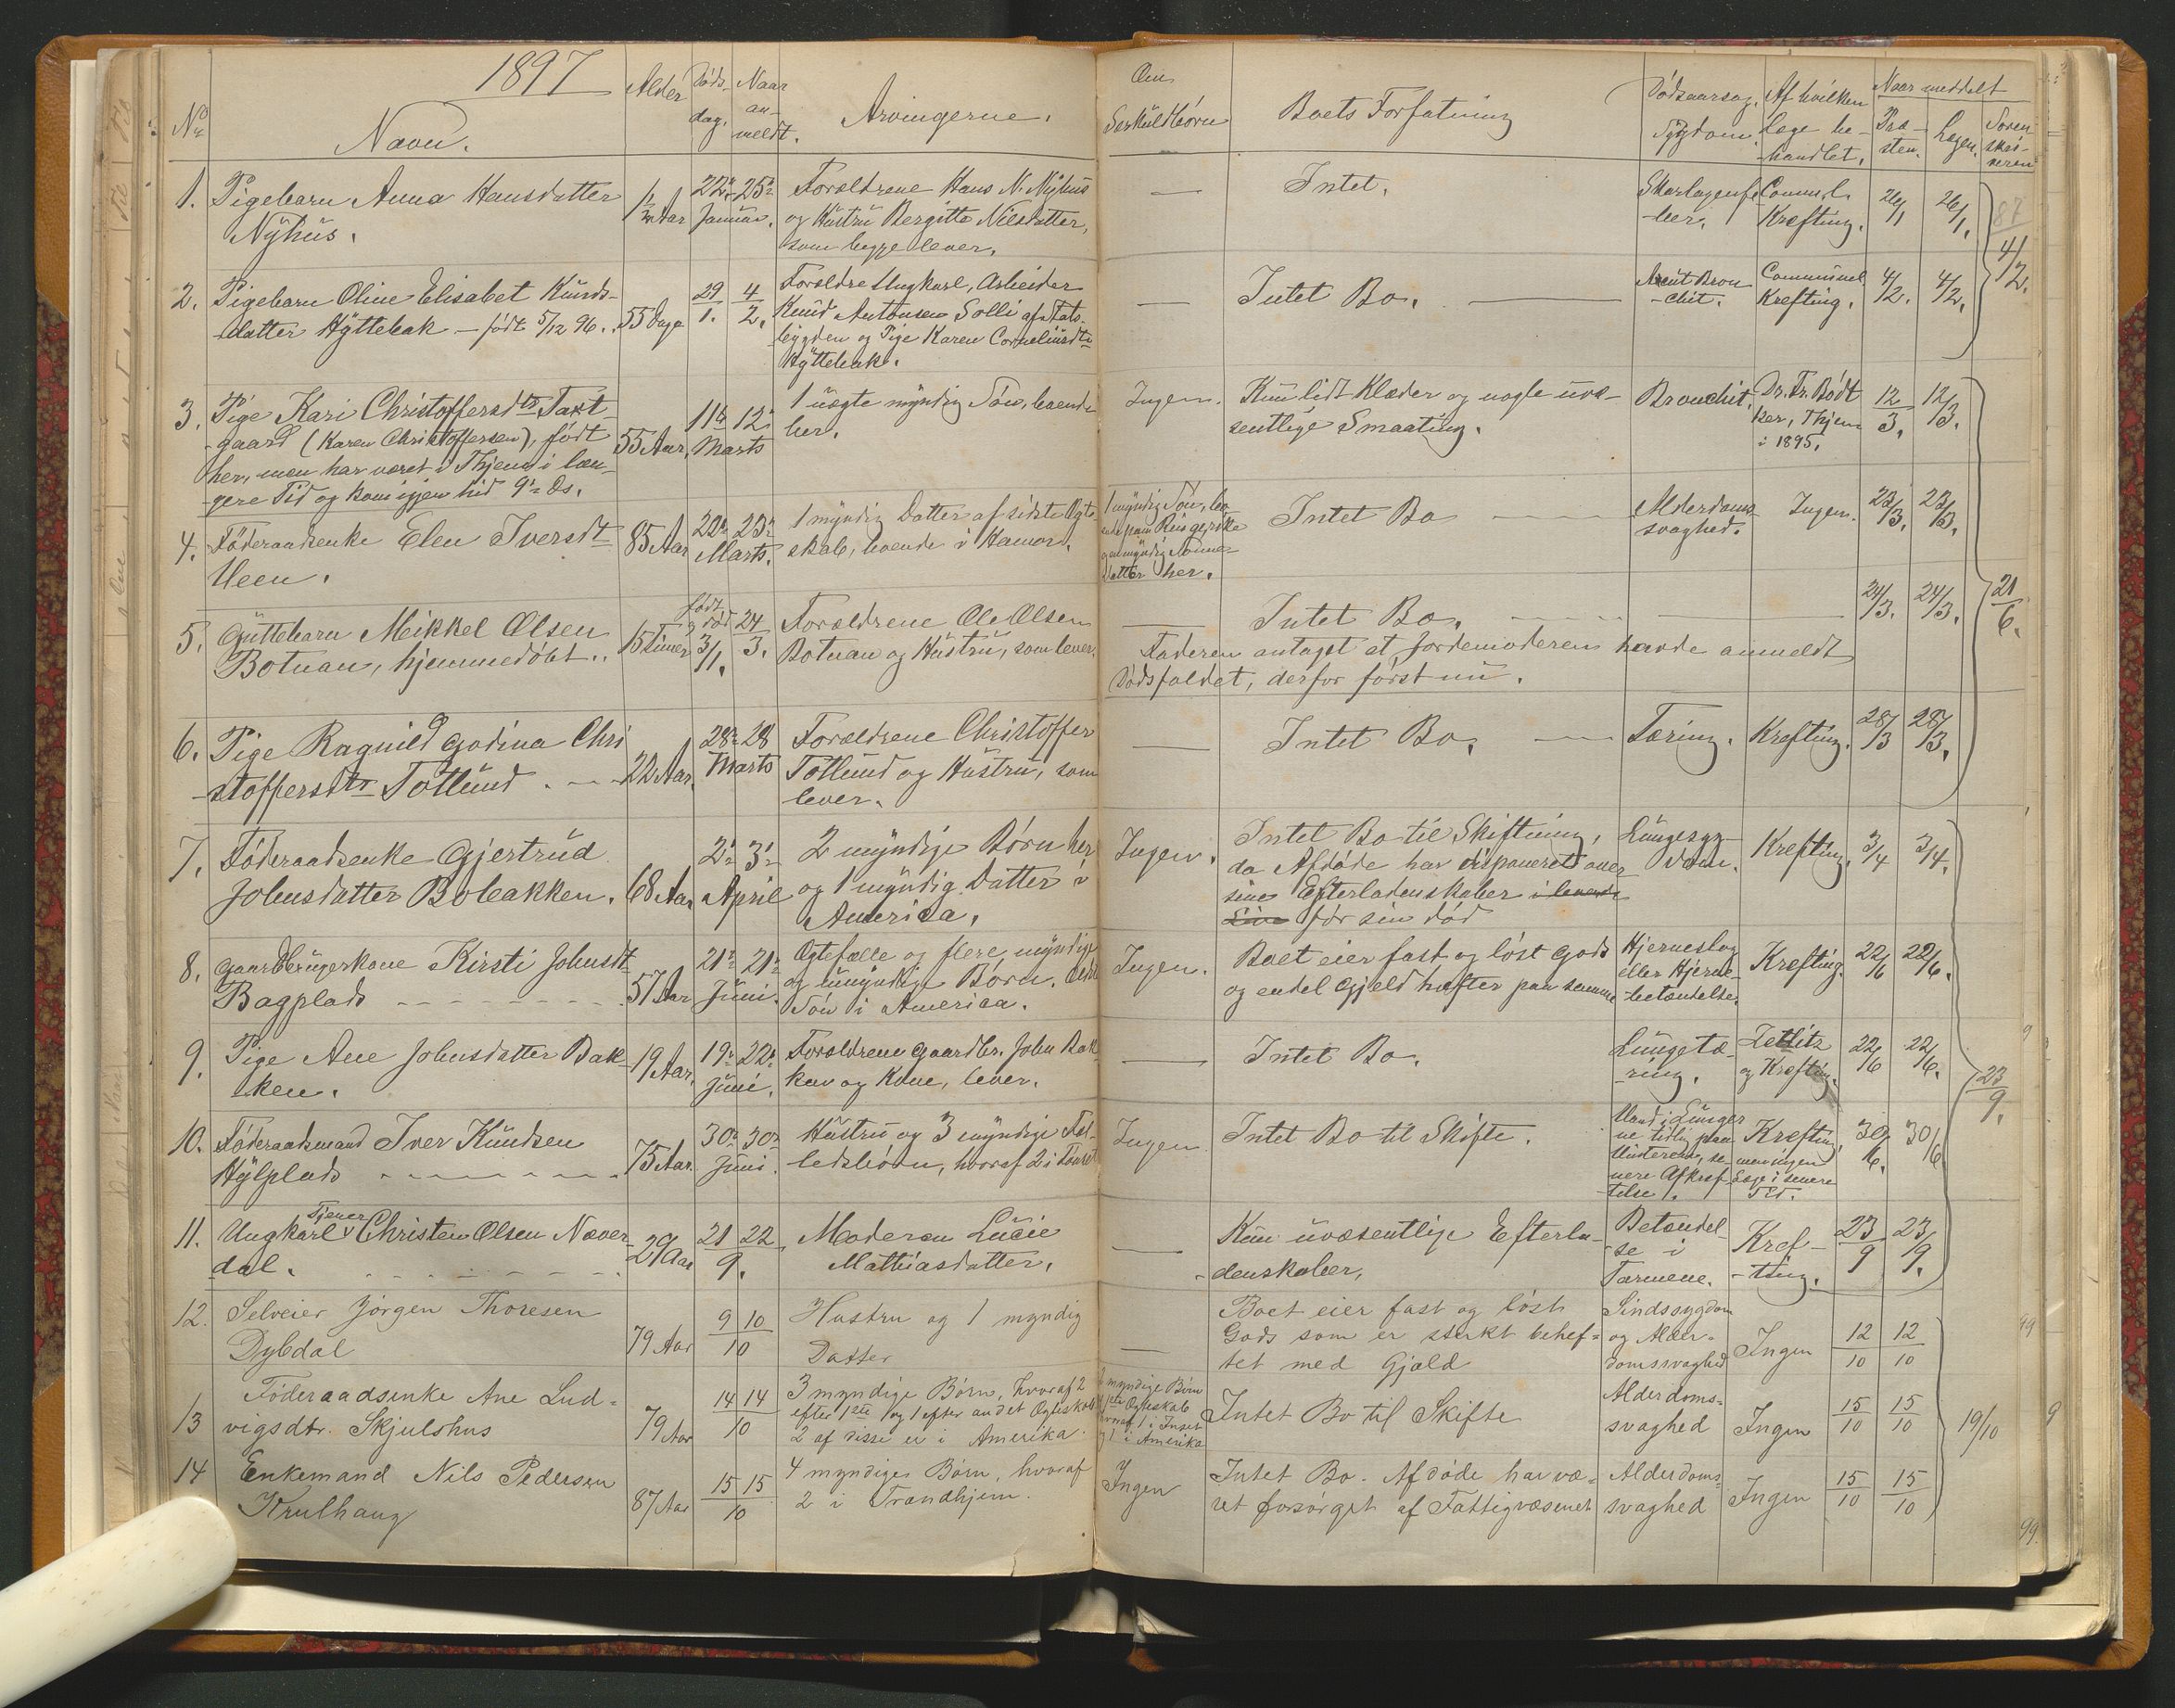 1897
No
Navn.
Alder
Døds-
dag.
Naar
an-
meldt.
Arvingerne.
Om
Særkuldbørn
Boets Forfatning
Dødsaarsag,
Sygdom.
Af hvilken
Læge be-
handlet.
Naar meddelt
Præ-
sten.
Lægen.
Soren-
skri-
veren
1. Pigebarn Anna Hansdatter
Nÿhus.
Aar
22de 25de
Januar.
Forældrene Hans N. Nÿhus
og Hustru Bergitte Nilsdatter,
som begge lever.
Intet.
Skarlagensfe-
ber.
Comm.l.
Krefting.
26/1
26/1.
2. Pigebarn Oline Elisabet Knuds-
datter Hÿttebak – født 5/12 96.
55 Dage
29/1.
4/2.
Forældre Ungkarl, Arbeider
Knud Antonsen Solli af Fats-
bygden og Pige Karen Corneliusdtr
Hÿttebak.
Intet Bo.
Acut Bron
-chit.
Communel
Krefting.
4/2.
4/2.
4/2.
3. Pige Kari Christoffersdtr
gaard (Karen Christoffersen), født
her, men har været i Thjem i læn-
gere Tid og kom igjen hid 9de Ds.
55 Aar.
11te 12te
Marts
1 uægte myndig Søn, boende
her.
Ingen.
Kun lidt Klæder og nogle uvæ-
sentlige Smaating.
Bronchit.
Dr. Fr. Bødt
ker, Thjem
i 1895.
12/3.
12/3.
4. Føderaadsenke Elen Iversdtr
Meen.
85 Aar
23de
Marts.
1 myndig Datter af sidste Ægte-
skab, boende i
1 myndig Søn, bo-
ende paa
og myndig Sønne-
datter her.
Intet Bo
Alderdoms-
svaghed.
Ingen.
23/3.
23/3.
5. Guttebarn Mikkel Olsen
Botnan, hjemmedøbt.
15 Timer
født
og død
3/1.
24/3.
Forældrene Ole Olsen
Botnan og Hustru, som lever.
Intet Bo.
24/3.
24/3.
Faderen antaget at Jordemoderen havde anmeldt
Dødsfaldet, derfor først nu.
21/6.
6. Pige Ragnild Godina Chri
stoffersdtr Totlund.
22 Aar.
28de 28
Marts
Forældrene Christoffer
Totlund og Hustru, som
lever.
Intet Bo.
Tæring.
Krefting.
28/3
28/3.
7. Føderaadsenke Gjertrud
Johnsdatter Bobakken.
68 Aar
2de 3de
April
2 myndige Børn her
og 1 myndig Datter i
America.
Ingen.
Intet Bo til Skiftning,
da Afdøde har disponeret over
sine Efterladenskaber i levende
Live før sin død
Lungesyg-
dom.
Krefting.
3/4
3/4.
8. Gaardbrugerkone Kirsti Johnsdtr
Bagplads
57 Aar
21de 21de
Juni.
Ægtefælle og flere myndige
og umyndige Børn.
Søn i America.
Ingen.
Boet eier fast og løst Gods
og endel Gjeld hefter paa samme
Hjerneslag
eller Hjerne-
betændelse.
Krefting.
22/6
22/6.
9. Pige Ane Johnsdatter Bak-
ken.
19 Aar.
19de 22de
Juni.
Forældrene Gaardbr. John Bak-
ken og Kone, lever.
Intet Bo.
Lungetæ-
ring.
Zetlitz
og Krefting.
22/6
22/6.
23/9.
10. Føderaadsmand Iver Knudsen
Hÿlplads
75 Aar.
30te 30te
Juni.
Hustru og 3 myndige Fæl-
ledsbørn, hvoraf 2 i
Ingen
Intet Bo til Skifte.
Vand i Lunger
ne tidlig paa
Vinteren, se-
nere Afkræf-
telse.
Krefting,
men ingen
Læge i senere
Tid.
30/6.
30/6
11. Ungkarl Tjener Christen Olsen Næver
dal.
29 Aar
21 22
9.
Moderen Lucie
Mathiasdatter.
Kun uvæsentlige Efterla-
denskaber.
Betændel-
se i
Tarmene.
Kref-
ting.
23/9
23/9.
12. Selveier Jørgen Thoresen
Dybdal
79 Aar
9 10
10
Hustru og 1 myndig
Datter
Boet eier fast og løst
Gods som er sterkt behef-
tet med Gjæld
Sindssygdom
og Alder-
domssvaghed
Ingen
12/10
12/10
13 Føderaadsenke Ane Lud-
vigsdtr. Skjulshus
79 Aar
14 14
10
3 myndige Børn, hvoraf 2
efter 1ste og 1 efter andet Ægteskab
2 af disse er i Amerika.
myndige Børn
Ægteskab
hvoraf 1 i Inset
og 1 i Amerika
Intet Bo til Skifte
Alderdoms-
svaghed
Ingen
15/10
15/10
19/10
14 Enkemand Nils Pedersen
Krulhaug
87 Aar
15 15
10
4 myndige Børn, hvoraf
2 i Trondhjem.
Ingen
Intet Bo. Afdøde har væ-
ret forsørget af Fattigvæsenet
Alderdoms-
svaghed
Ingen
15/10
15/10